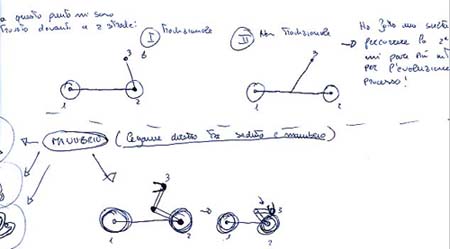 a questo punto mi sono
trovato davanti a 2 strade:
I Tradizionale
II Non Tradizionale
→ Ho fatto una scelta
percorrere la 2ª
mi pare più
per l'evoluzione
processo!
3
1 2
3
1 2
MANUBRIO (legame diretto tra sedile e manubrio)
3
1 2
3
2